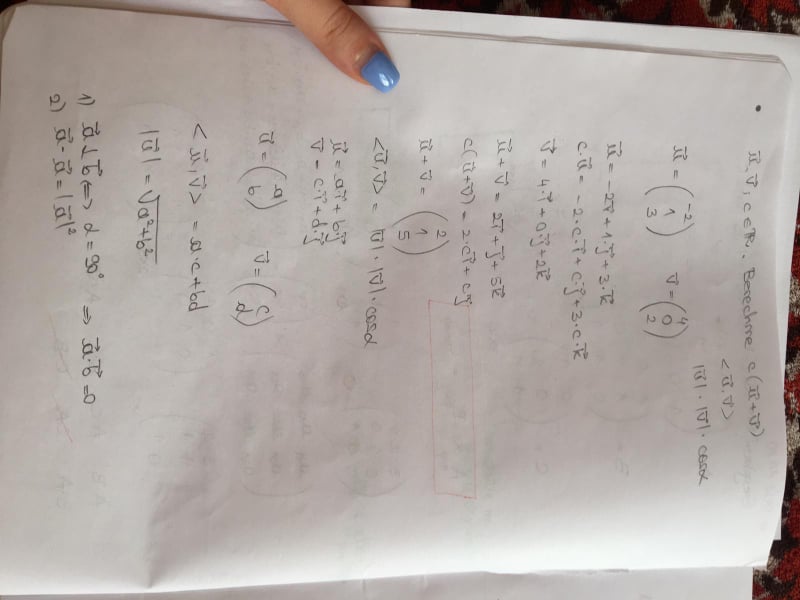 • u⃗, v⃗, c∈ℝ. Berechne c(u⃗+v⃗)
<u⃗,v⃗>
|u⃗|·|v⃗|·cosα
u⃗ = (-2 1 3) v⃗ = (4 0 2)
u⃗ = -2i⃗+1·j⃗+3·k⃗
c·u⃗ = -2·c·i⃗+c·j⃗+3·c·k⃗
v⃗ = 4·i⃗+0·j⃗+2k⃗
u⃗+v⃗ = 2i⃗+j⃗+5k⃗
c(u⃗+v⃗) = 2·ci⃗+cj⃗
u⃗+v⃗ = (2 1 5)
<u⃗,v⃗> = |u⃗|·|v⃗|·cosα
u⃗ = ai⃗+b·j⃗
v⃗ = c·i⃗+d·j⃗
u⃗ = (a b) v⃗ = (c d)
<u⃗,v⃗> = a·c+bd
|u⃗| = √a²+b²
1) a⃗⊥b⃗ ⇔ α=90° ⇒ a⃗·b⃗=0
2) a⃗·a⃗=|a⃗|²